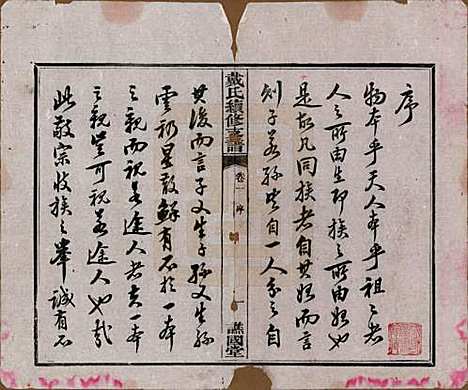 序
物本乎天人本乎祖祖者
人之所由生即族之所由始也
是故凡同族者自其始而言
则子若孙皆自一人分之自
戴氏續修支譜
卷一 序
一
譙國堂
其後而言子又生子孫又生孫
雲礽星散鮮有不於一本
之親而視若途人者夫一本
之親豈可視若途人也哉
此敬宗收族之舉誠有不